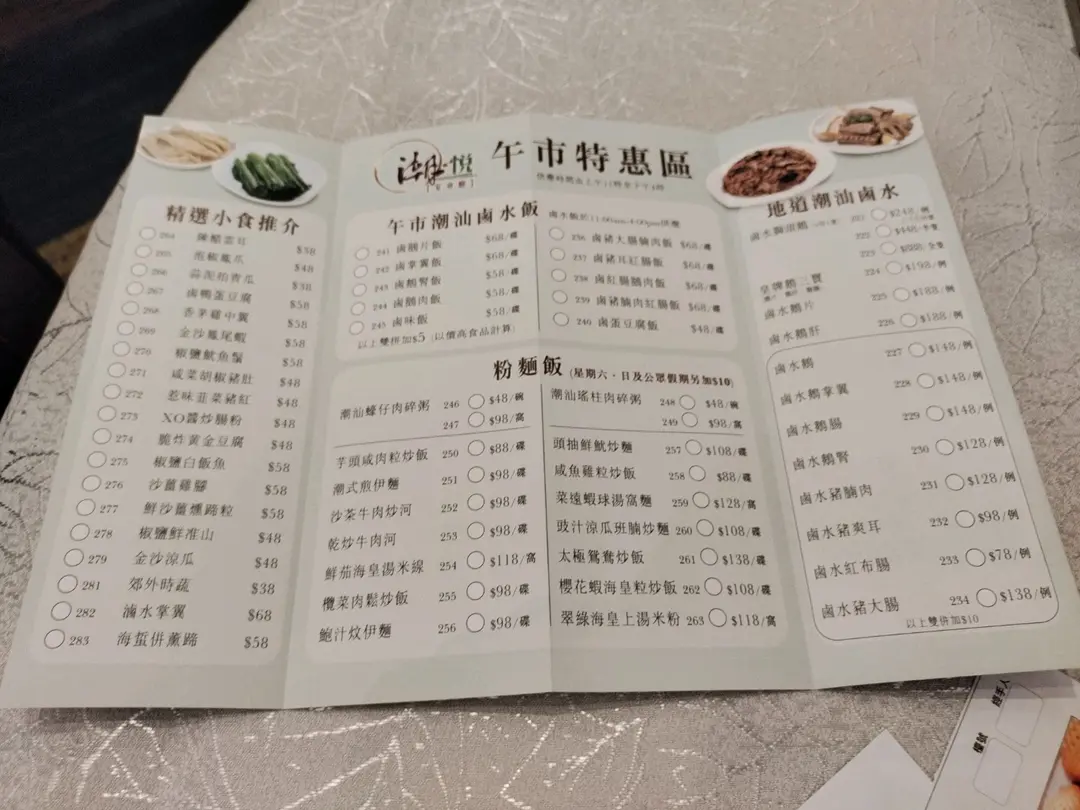 潮悦
午市特惠區
精選小食推介
264 陳醋雲耳 $38
265 泡椒鳳爪 $48
266 蒜泥拍青瓜 $38
267 鹵鴨蛋豆腐 $58
268 香茅雞中翼 $58
269 金沙鳳尾蝦 $58
270 椒鹽魷魚鬚 $58
271 咸菜胡椒豬肚 $48
272 惹味韮菜豬紅 $48
273 XO醬炒腸粉 $48
274 脆炸黃金豆腐 $48
275 椒鹽白飯魚 $58
276 沙薑雞腳 $58
277 鮮沙薑燻蹄粒 $58
278 椒鹽鮮淮山 $48
279 金沙涼瓜 $48
281 郊外時蔬 $38
282 滷水掌翼 $68
283 海蜇併薰蹄 $58
午市潮汕鹵水飯
鹵水飯於11:00am-4:00pm供應
241 鹵鵝片飯 $68/碟
242 鹵掌翼飯 $68/碟
243 鹵鵝腎飯 $58/碟
244 鹵鵝肉飯 $58/碟
245 鹵味飯 $58/碟
以上雙併加$5 (以價高食品計算)
236 鹵豬大腸腩肉飯 $68/碟
237 鹵豬耳紅腸飯 $68/碟
238 鹵紅腸鵝肉飯 $68/碟
239 鹵豬腩肉紅腸飯 $68/碟
240 鹵蛋豆腐飯 $48/碟
粉麵飯 (星期六、日及公眾假期另加$10)
潮汕蠔仔肉碎粥 246 $48/碗
247 $98/窩
芋頭咸肉粒炒飯 250 $88/碟
潮式煎伊麵 251 $98/碟
沙茶牛肉炒河 252 $98/碟
乾炒牛肉河 253 $98/碟
鮮茄海皇湯米線 254 $118/窩
欖菜肉鬆炒飯 255 $98/碟
鮑汁炆伊麵 256 $98/碟
潮汕瑤柱肉碎粥 248 $48/碗
249 $98/窩
頭抽鮮魷炒麵 257 $108/碟
咸魚雞粒炒飯 258 $88/碟
菜遠蝦球湯窩麵 259 $128/窩
豉汁涼瓜班腩炒麵 260 $108/碟
太極鴛鴦炒飯 261 $138/碟
櫻花蝦海皇粒炒飯 262 $108/碟
翠綠海皇上湯米粉 263 $118/窩
地道潮汕鹵水
鹵水獅頭鵝 $248/例
222 $448/半隻
223 全隻
皇牌鵝三寶 224 $198/例
鹵水鵝片 225 $188/例
鹵水鵝肝 226 $188/例
鹵水鵝 227 $148/例
鹵水鵝掌翼 228 $148/例
鹵水鵝腸 229 $148/例
鹵水鵝腎 230 $128/例
鹵水豬腩肉 231 $128/例
鹵水豬爽耳 232 $98/例
鹵水紅布腸 233 $78/例
鹵水豬大腸 234 $138/例
以上雙併加$10